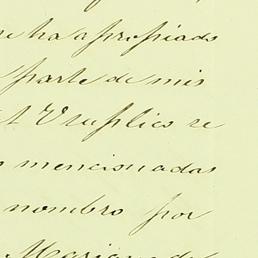 se ha apropiado
parte de mis
V suplico se
mencionadas
nombro por
Mariano de